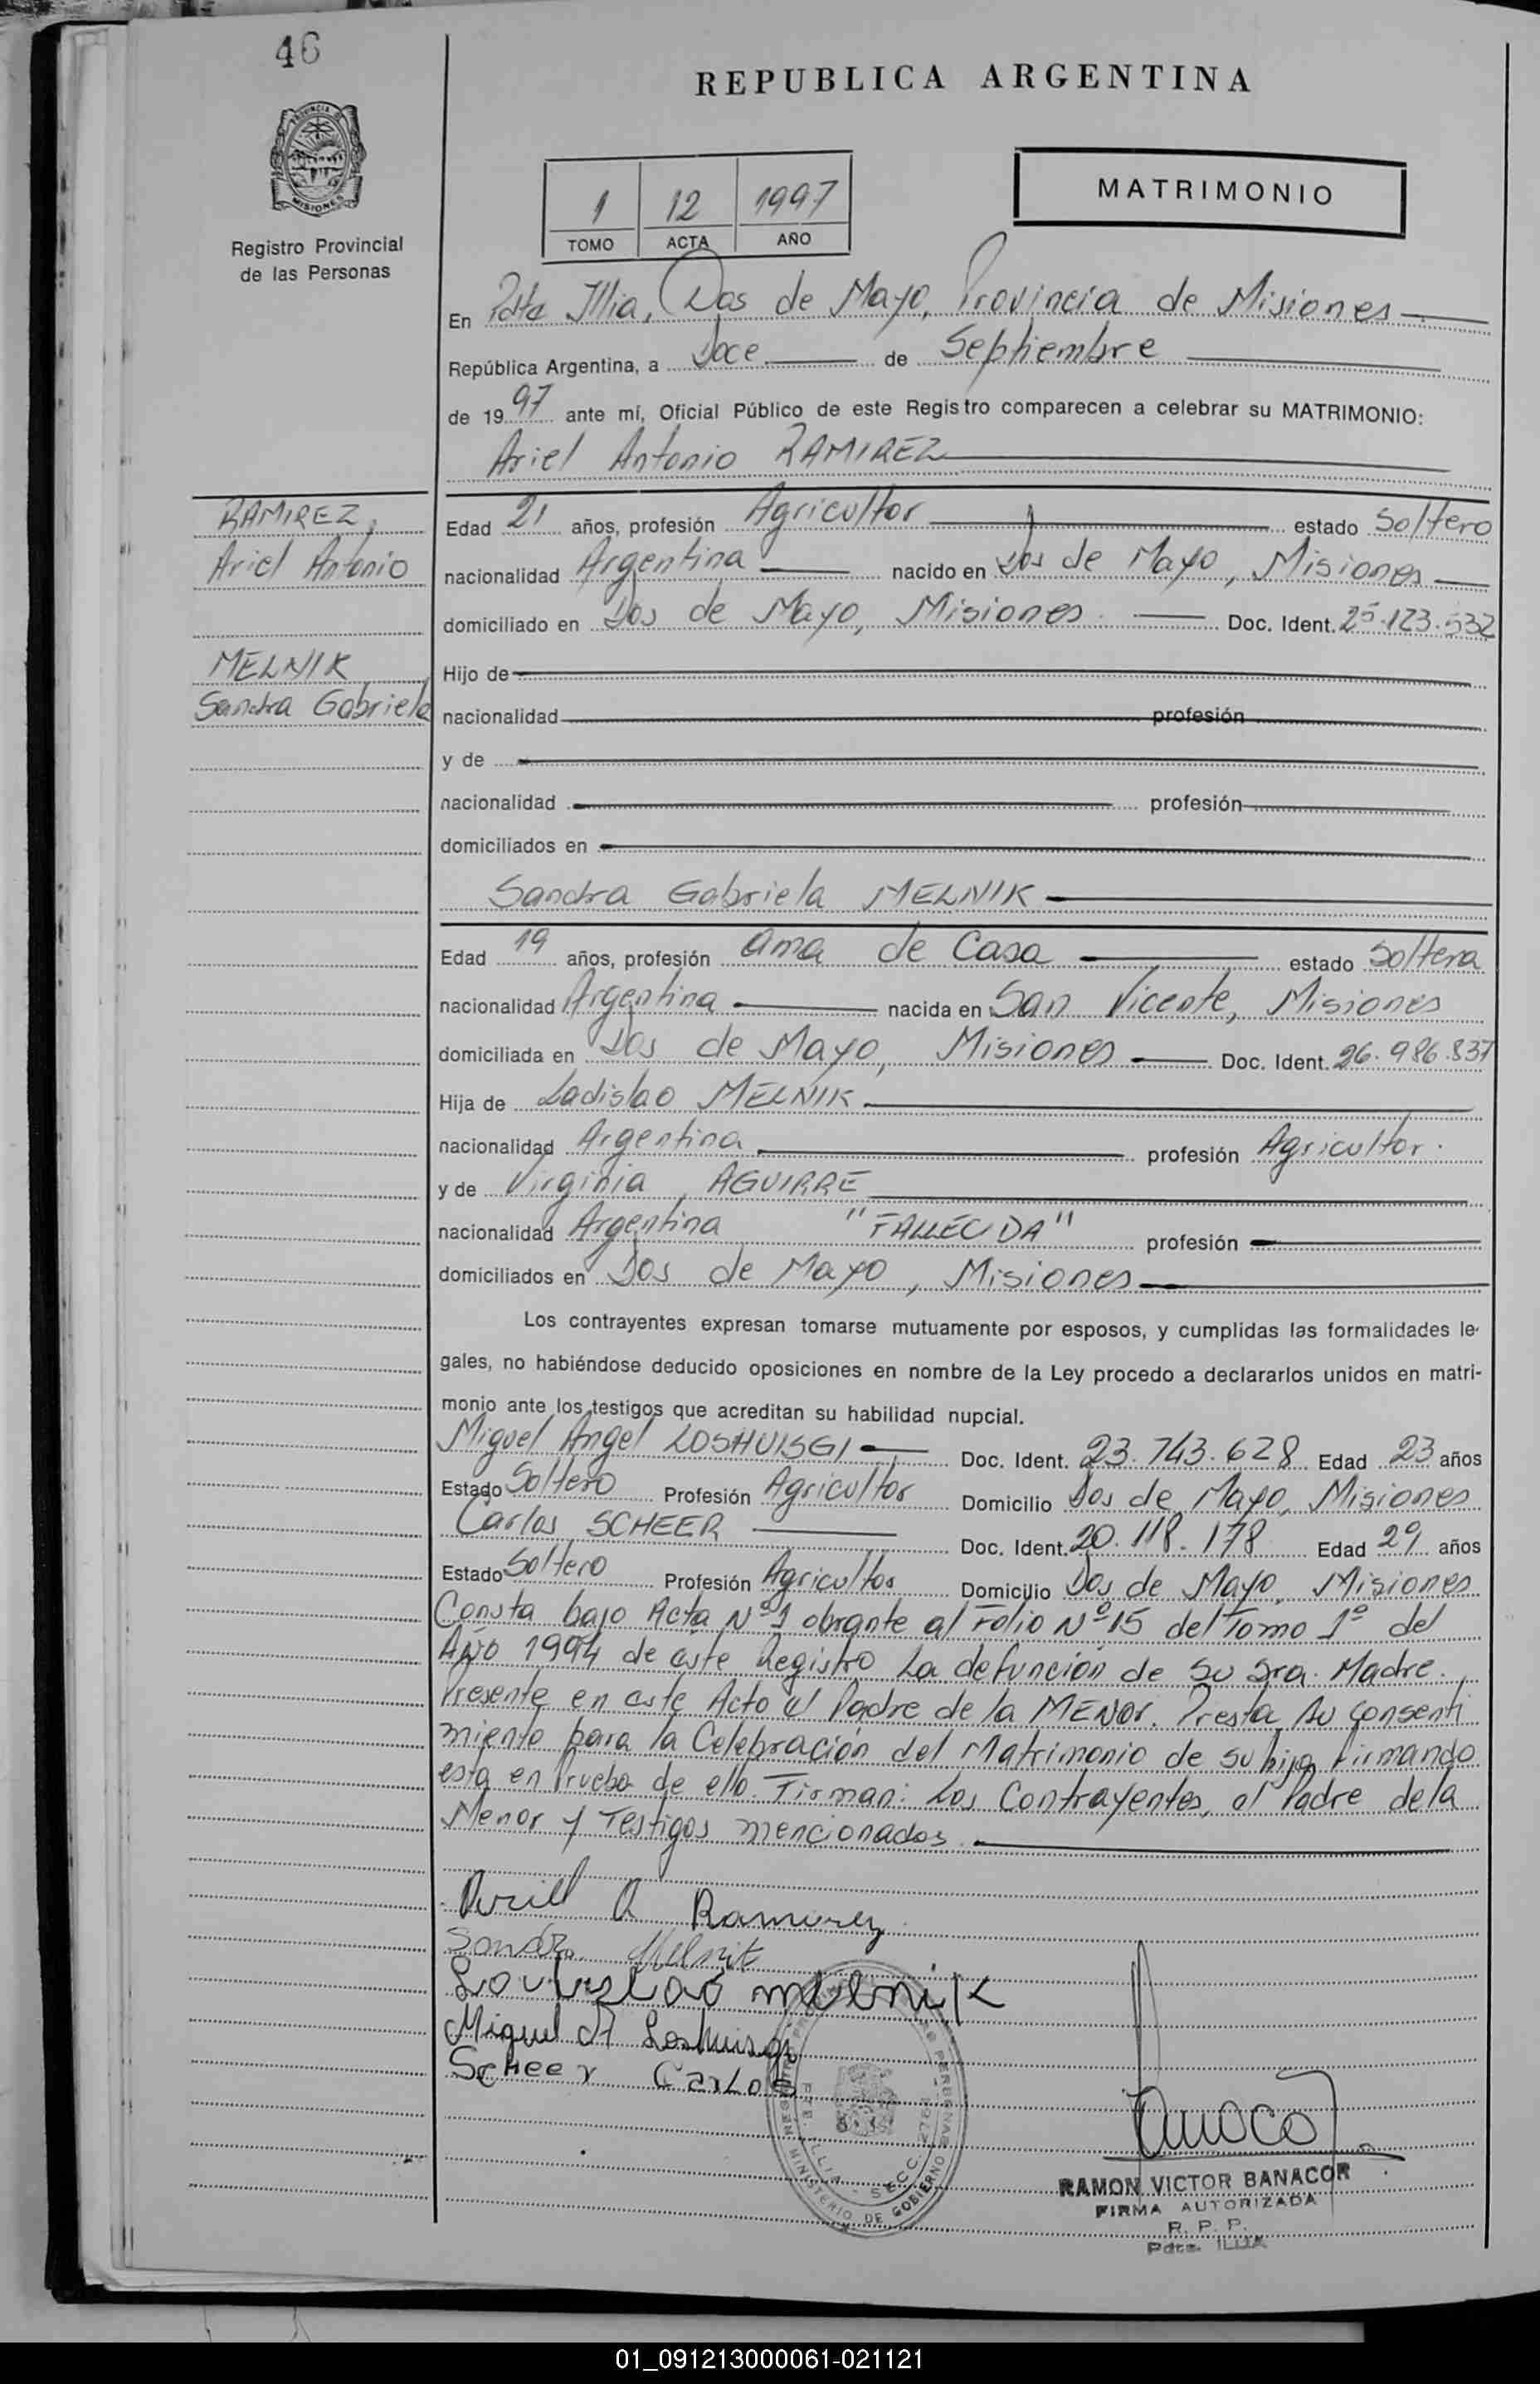 46
REPUBLICA ARGENTINA
PROVINCIA DE
MISIONES
Registro Provincial
de las Personas
1 12 1997
TOMO ACTA AÑO
MATRIMONIO
En Pdte Illia, Dos de Mayo, Provincia de Misiones
República Argentina, a Doce de Septiembre
de 1997 ante mí, Oficial Público de este Registro comparecen a celebrar su MATRIMONIO:
Ariel Antonio RAMIREZ
RAMIREZ,
Ariel Antonio
MELNIK
Sandra Gabriela
Edad 21 años, profesión Agricultor estado Soltero
nacionalidad Argentina nacido en Dos de Mayo, Misiones
domiciliado en Dos de Mayo, Misiones Doc. Ident. 25.123.532
Hijo de
nacionalidad profesión
y de
nacionalidad profesión
domiciliados en
Sandra Gabriela MELNIK
Edad 19 años, profesión Ama de Casa estado Soltera
nacionalidad Argentina nacida en San Vicente, Misiones
domiciliada en Dos de Mayo, Misiones Doc. Ident. 26.986.837
Hija de Ladislao MELNIK
nacionalidad Argentina profesión Agricultor.
y de Virginia AGUIRRE
nacionalidad Argentina "FALLECIDA" profesión
domiciliados en Dos de Mayo, Misiones
Los contrayentes expresan tomarse mutuamente por esposos, y cumplidas las formalidades le-
gales, no habiéndose deducido oposiciones en nombre de la Ley procedo a declararlos unidos en matri-
monio ante los testigos que acreditan su habilidad nupcial.
Miguel Angel LOSHUISGI Doc. Ident. 23.743.628 Edad 23 años
Estado Soltero Profesión Agricultor Domicilio Dos de Mayo, Misiones
Carlos SCHEER Doc. Ident. 20.118.178 Edad 29 años
Estado Soltero Profesión Agricultor Domicilio Dos de Mayo, Misiones
Consta bajo Acta Nº 1 obrante al Folio Nº 15 del Tomo 1º del
AÑO 1994 de este Registro La defunción de su Sra. Madre.
Presente en este Acto el Padre de la MENOR. Presta su consenti
miento para la Celebración del Matrimonio de su hija firmando
esta en Prueba de ello. Firman: Los Contrayentes, el Padre de la
Menor y Testigos mencionados.
Ariel A Ramirez
Sandra Melnik
Ladislao melnik
Miguel A Loshuisgi
Scheer Carlos
PTE. ILLIA - SECC. 2762
MINISTERIO DE GOBIERNO
RAMON VICTOR BANACOR
FIRMA AUTORIZADA
R. P. P.
Pdte. ILLIA
01_091213000061-021121